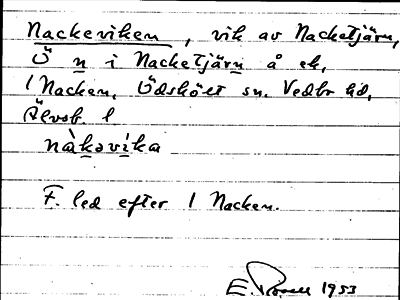 Nackeviken, vik av Nacketjärn,
Ö n i Nacketjärn å ek,
1 Nacken, Ödskölt sn. Vedbo hd,
Älvsb. l
nàkəvika
F. led efter 1 Nacken.
E. 1953